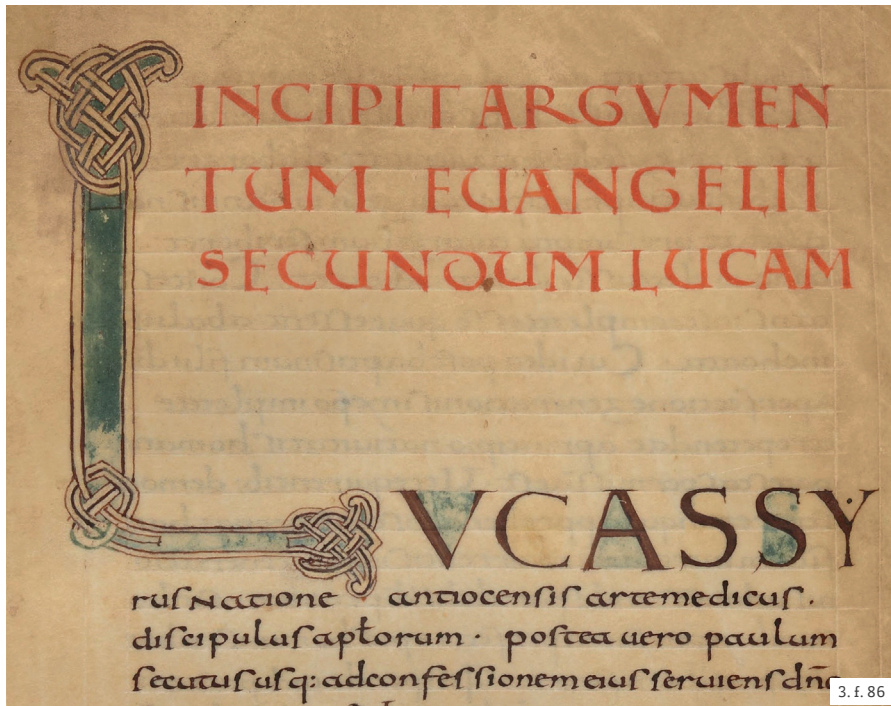 INCIPIT ARGVMEN
TUM EUANGELII
SECUNDUM LUCAM
LVCAS SY
rus natione antiocensis arte medicus.
discipulus aptorum · postea uero paulum
secutus usq: ad confessionem eius seruiens dño
3. f. 86